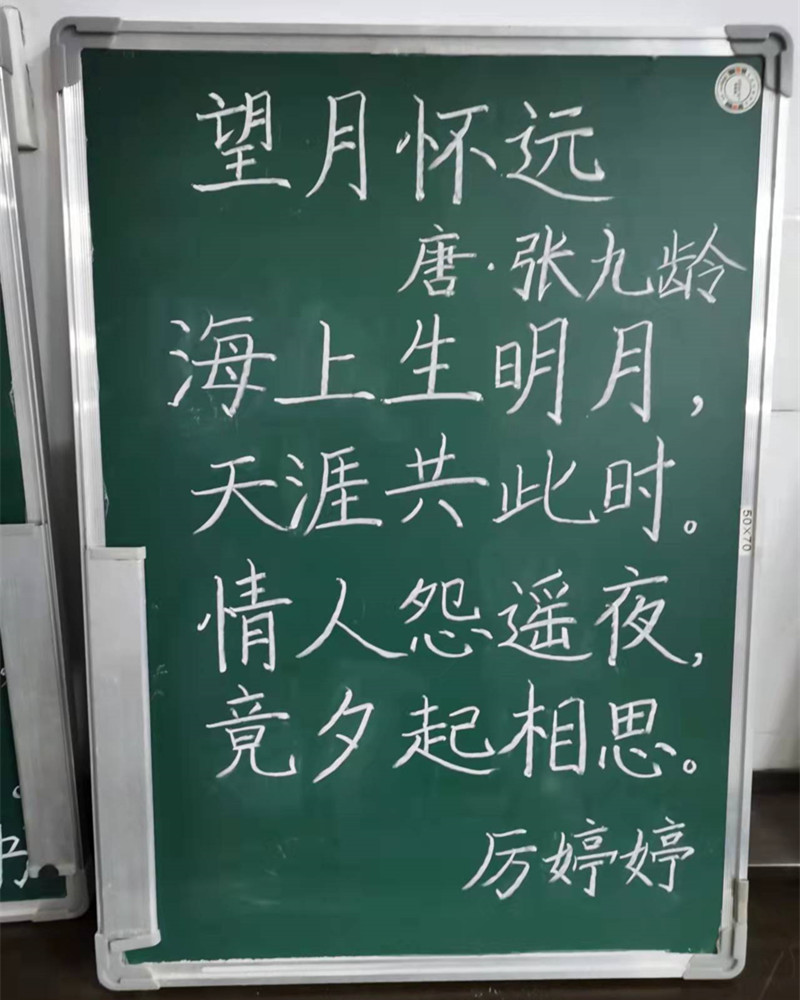 望月怀远
唐·张九龄
海上生明月，
天涯共此时。
情人怨遥夜，
竟夕起相思。
厉婷婷
50×70